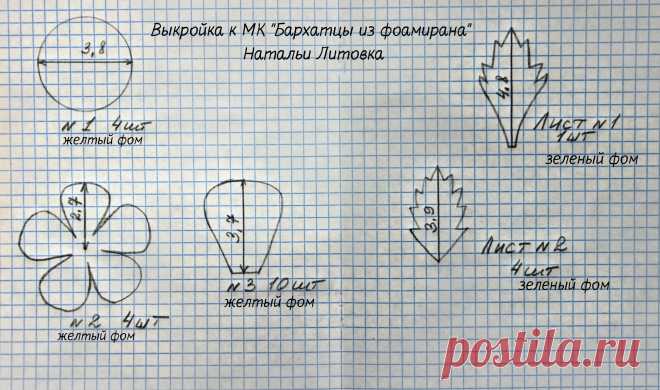 Выкройка к МК "Бархатцы из фоамирана"
Натальи Литовка
3,8
N1 4шт
желтый фом
4,8
Лист N1
1шт
зеленый фом
2,7
N2 4шт
желтый фом
3,7
N3 10шт
желтый фом
3,9
Лист N2
4шт
зеленый фом
postila.ru